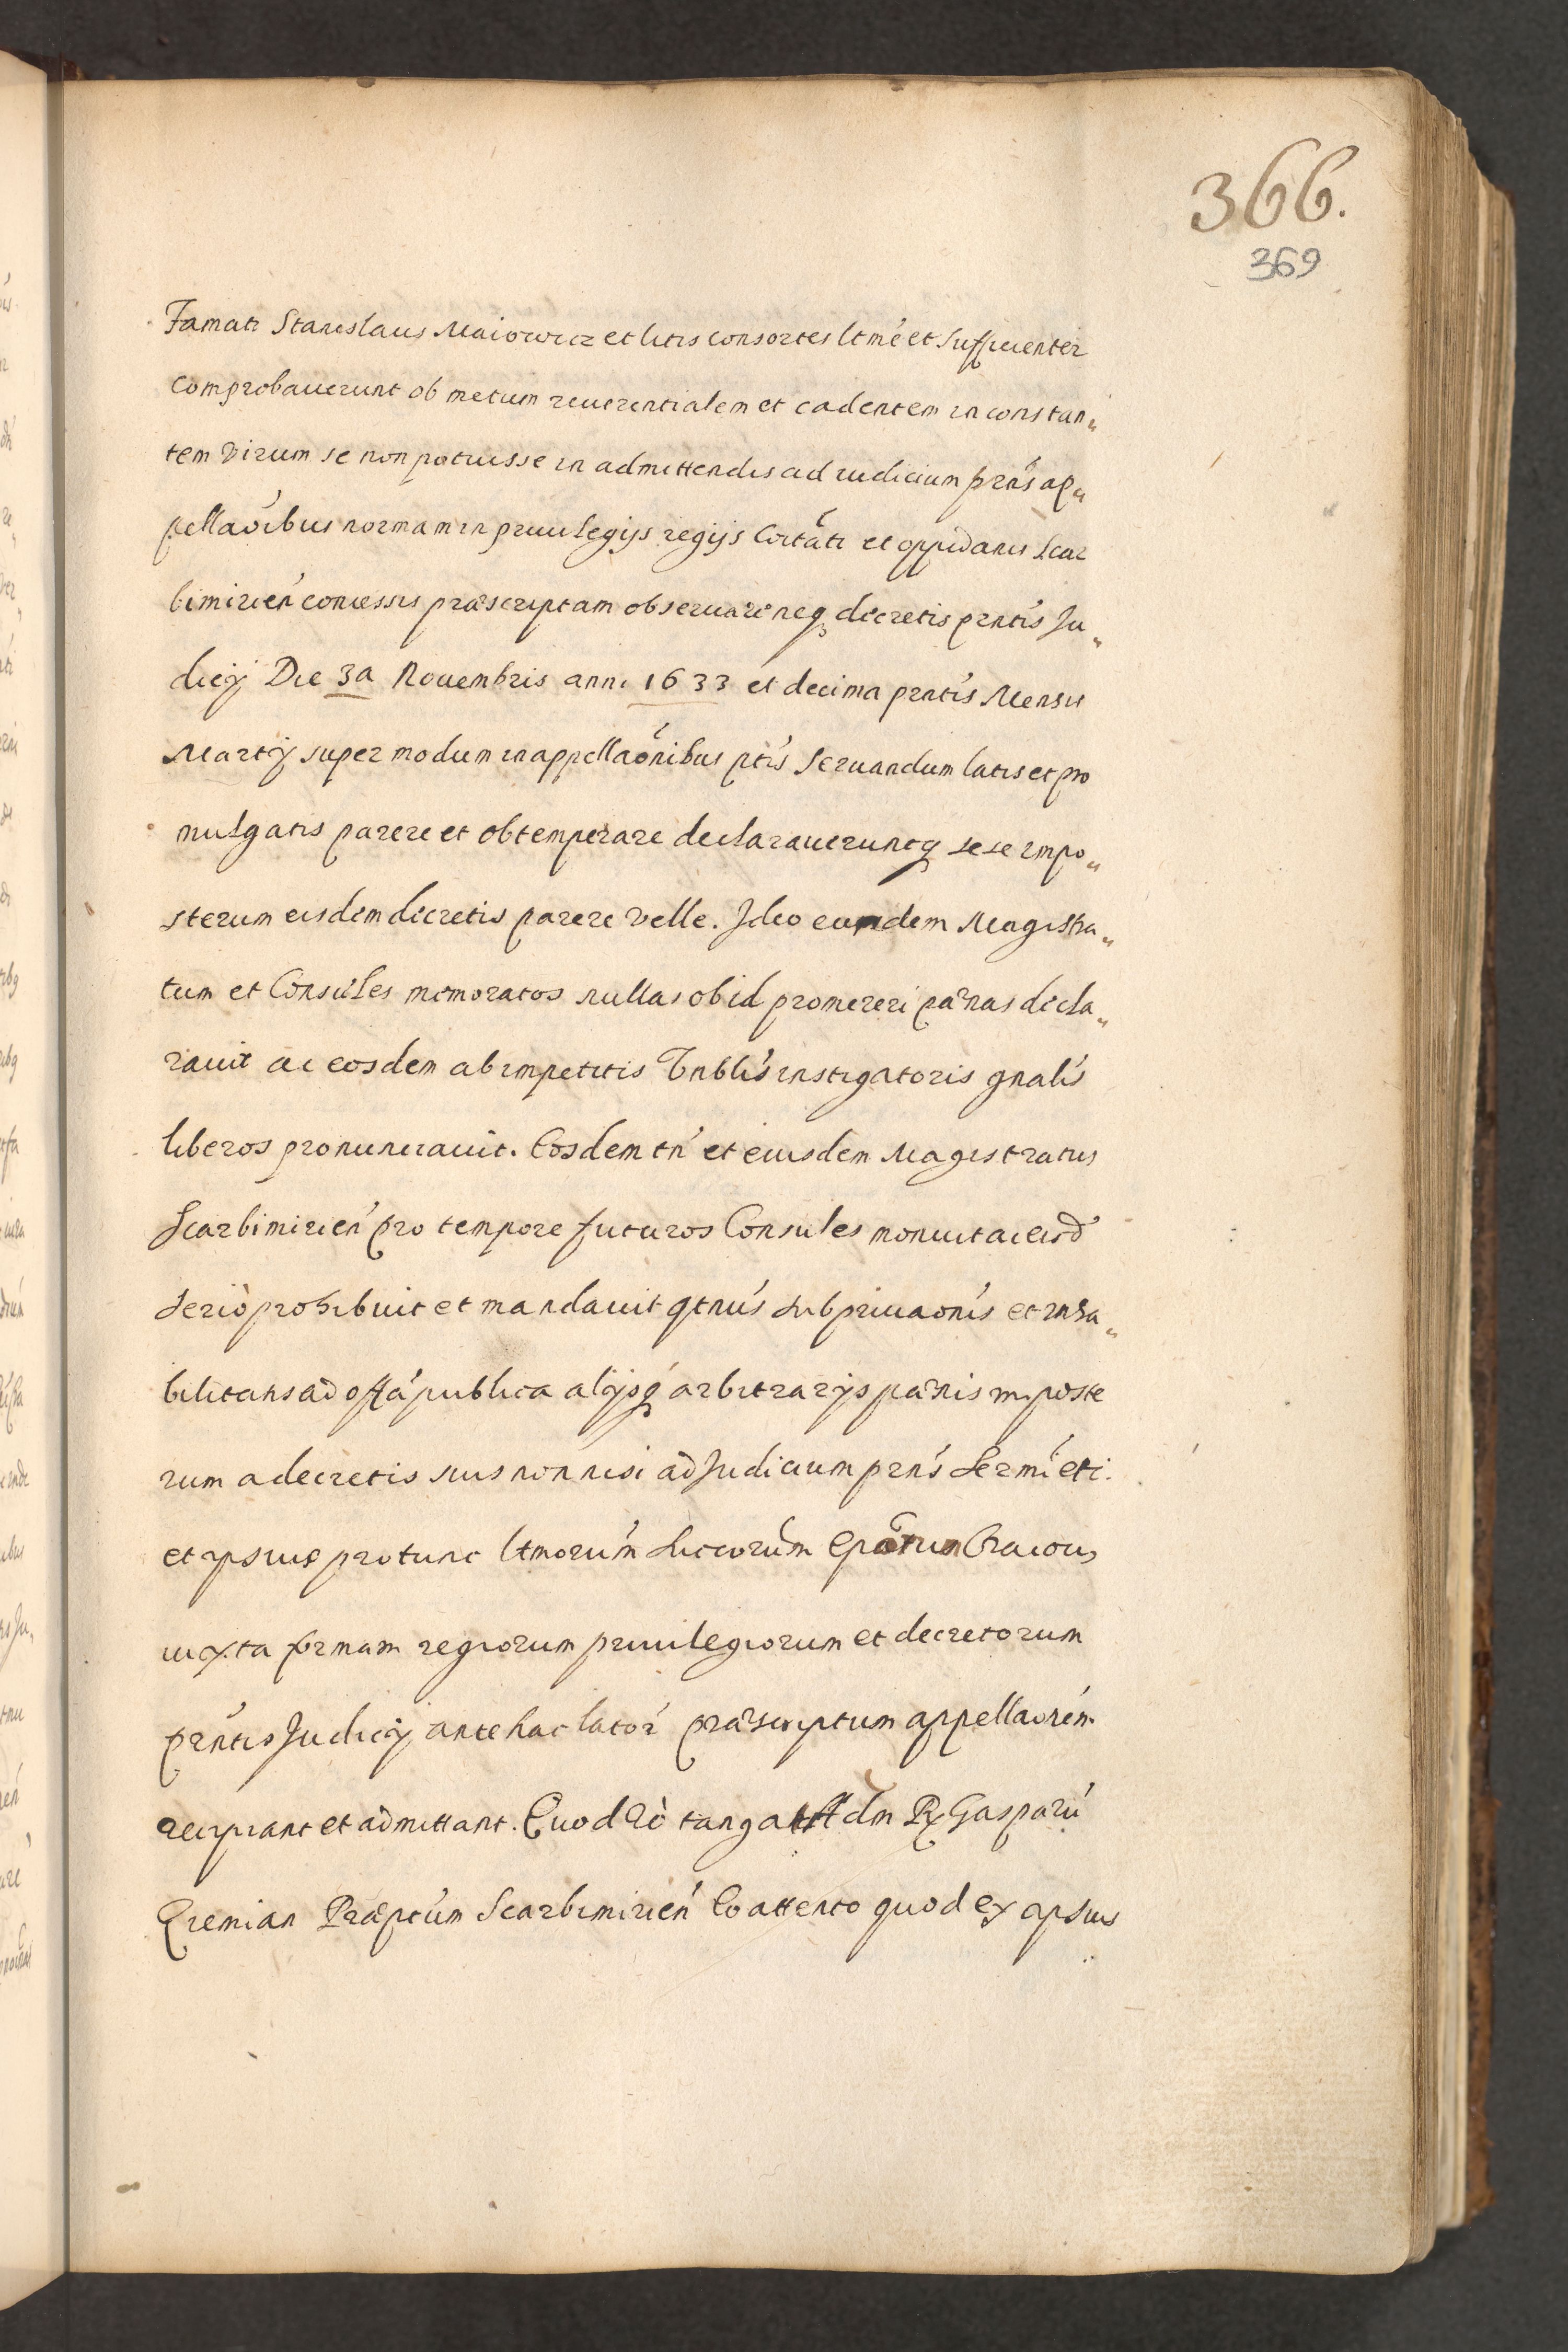 366.
369
Famati Stanislaus Maiowicz et litis consortes ltmé et sufficienter
comprobauerunt ob metum reuerentialem et cadentem in constan„
tem virum se non potuisse in admittendis ad iudicium prñs ap„
pellaõibus normam in priuilegijs regijs Ciuitãti et oppidanis Scar
bimirień concessis præscriptam obseruare neq decretis prntis Ju„
dicij Die 3a Nouembris anni 1633 et decima prntis Mensis
Martij super modum in appellaõnibus ptis seruandum latis et pro
mulgatis parere et obtemperare declaraueruntq sese impo„
sterum eisdem decretis parere velle. Ideo eundem Magistra„
tum et Consules memoratos nullas ob id promereri pænas decla„
rauit ac eosdem ab impetitis Inblis instigatoris gnalis
liberos pronunciauit. Eosdem tń et eiusdem Magistratus
Scarbimirień pro tempore futuros Consules monuit ac eisd
seriò prohibuit et mandauit qtnus sub priuaonis et inha„
bilitatis ad offa publica alijsq arbitrarijs pænis imposte
rum a decretis suis non nisi ad Judicium prns Sermi etc.
et ipsius pro tunc ltmorum succorum Epatus Cracou,
iuxta formam regiorum priuilegiorum et decretorum
prntis Judicij antehac lator præscriptum appellaonem
recipiant et admittant. Quod vò tangat dm R Gasparú
Cremian Præptum Scarbimirień Eo attento quod ex ipsius